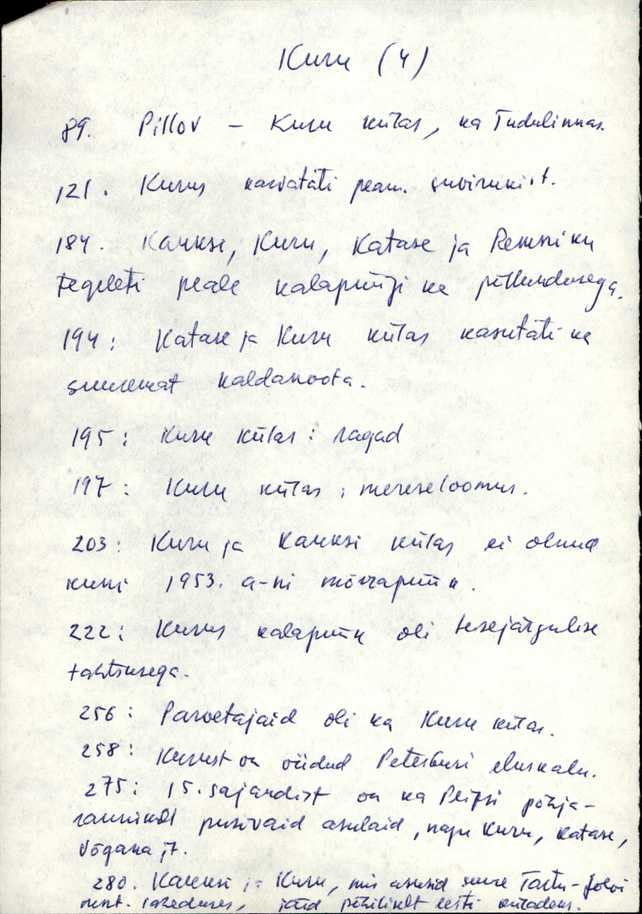 Kuru (4)
89. Pillov – Kuru külas, ka Tudulinnas.
121. Kurus kasvatati peam. suvirukist.
184. Kauksi, Kuru, Katase ja Remniku
tegeleti peale kalapüügi ka põllundusega.
194: Katase ja Kuru külas kasutati ka
suuremat kaldanoota.
195: Kuru külas: ragad
197: Kuru külas: mereseloomus.
203: Kuru ja Kauksi külas ei olnud
kuni 1953. a-ni mõrrapüük.
222: Kurus kalapüük oli teisejärgulise
tähtsusega.
256: Parvetajaid oli ka Kuru külas.
258: Kurust on viidud Peterburi eluskalu.
275: 15. sajandist on ka Peipsi põhja-
rannikult püsivaid asulaid, nagu Kuru, Katase,
Võgana jt.
280. Kauksi ja Kuru, mis asusid suure Tartu-Jõhvi
mnt. läheduses, jäid põhiliselt eesti küladeks.